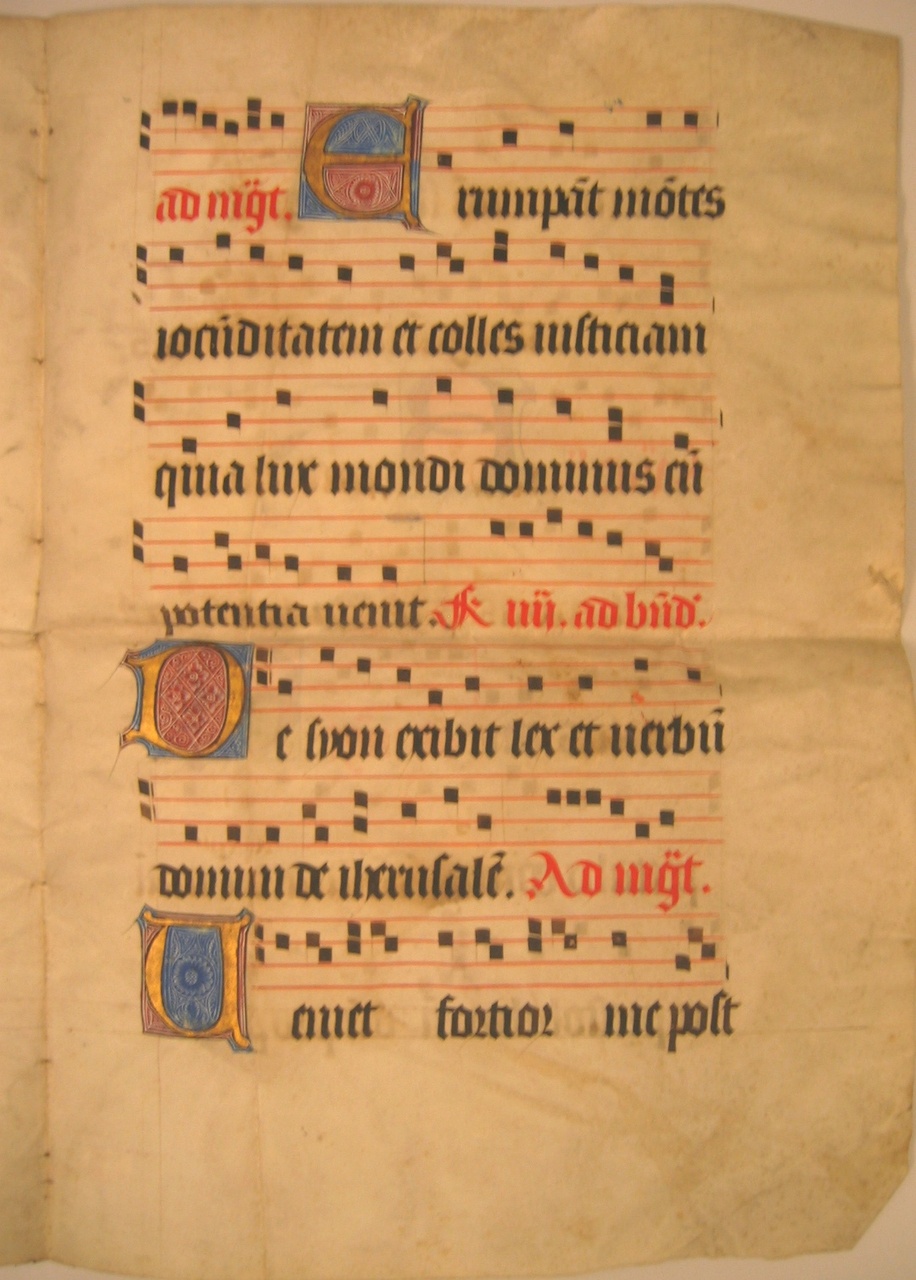 ad mg̃t. Erumpãt mõtes
iocũditatem et colles iusticiam
quia lux mondi dominus cũ
potentia uenit. iiij. ad bñd.
De syon exibit lex et uerbũ
domini de iherusalẽ. Ad mg̃t.
Ueniet fortior me post